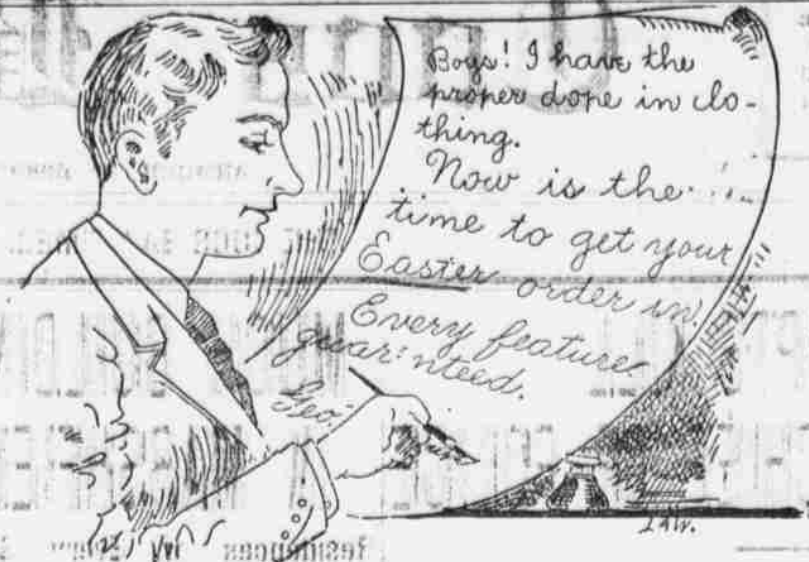 Boys! I have the
proper dope in clo-
thing.
Now is the
time to get your
Easter order in.
Every feature
guar'nteed.
Geo.